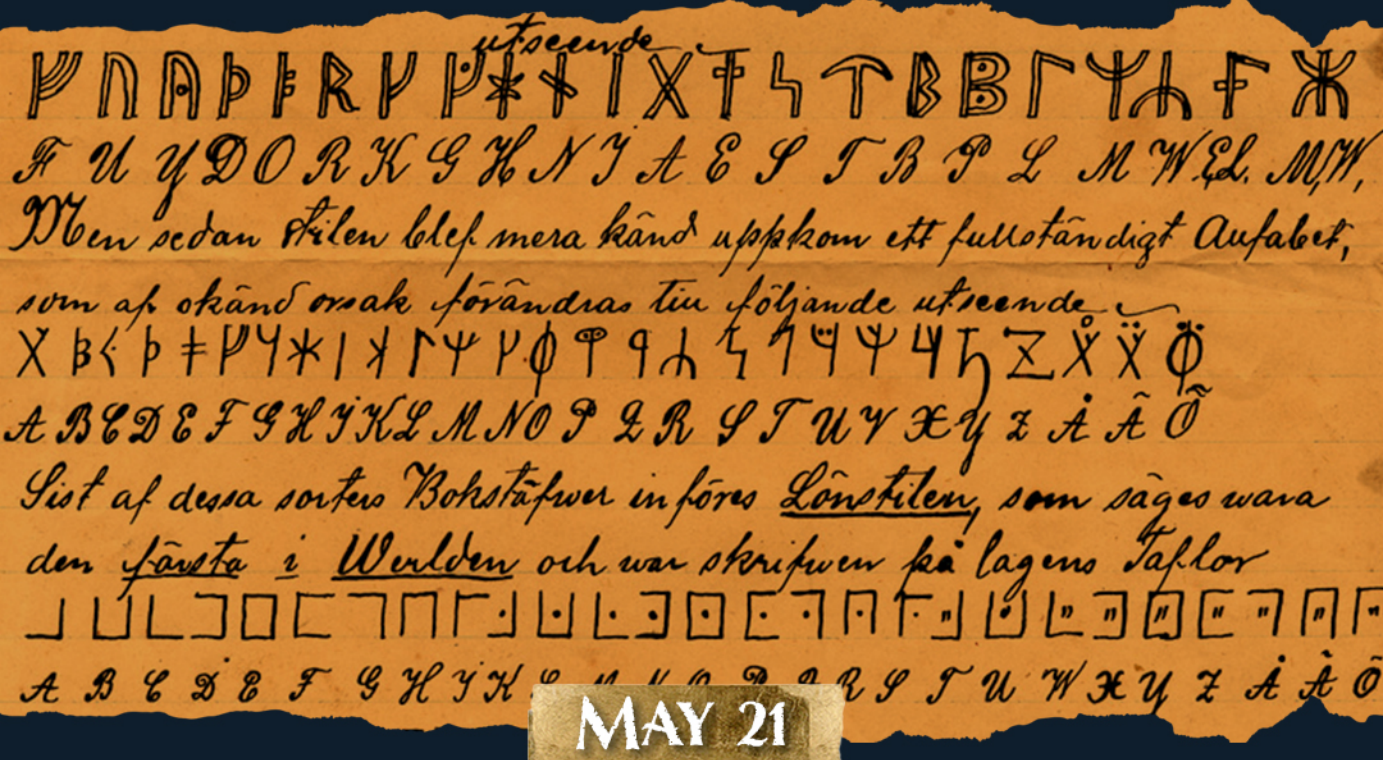 utseende
F U Y D O R K G H N I A E S T B P L M W EL. M,W,
Men sedan stilen blef mera känd uppkom ett fullständigt Alfabet,
som af okänd orsak förändras till följande utseende
A B C D E F G H I K L M N O P Q R S T U V X Y Z Å Ä Ö
Sist af dessa sorters Bokstäfwer införes Lönstilen, som säges wara
den första i Werlden och war skrifwen på lagens Taflor
A B C D E F G H I K L M N O P Q R S T U W X Y Z Å Ä Ö
MAY 21